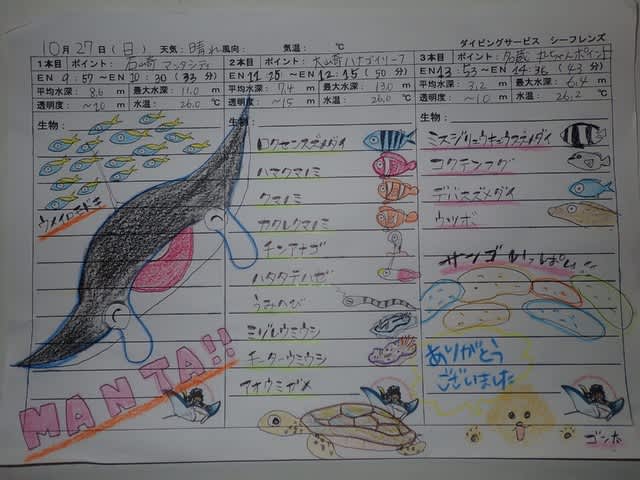 10月27日(日) 天気:晴れ 風向: 気温: ℃ ダイビングサービス シーフレンズ
1本目 ポイント:石崎 マンタシティ
EN 9:57 ~ 10:30 (33分)
平均水深: 8.6 m 最大水深: 11.0 m
透明度: ~10 m 水温: 26.0 ℃
生物:
ウメイロモドキ
MANTA!!
2本目 ポイント:大崎ハナゴイリーフ
EN 11:25 ~ 12:15 (50分)
平均水深: 7.4 m 最大水深: 13.0 m
透明度: ~15 m 水温: 26.0 ℃
生物:
ロクセンスズメダイ
ハマクマノミ
クマノミ
カクレクマノミ
チンアナゴ
ハタタテハゼ
うみへび
ミゾレウミウシ
チーターウミウシ
アオウミガメ
3本目 ポイント:名蔵 ポイント
EN 13:53 ~ 14:36 (43分)
平均水深: 3.2 m 最大水深: 6.4 m
透明度: ~10 m 水温: 26.2 ℃
生物:
ミスジリュウキュウスズメダイ
コクテンフグ
デバスズメダイ
ウツボ
サンゴいっぱい
ありがとう
ございました
ゴンタ